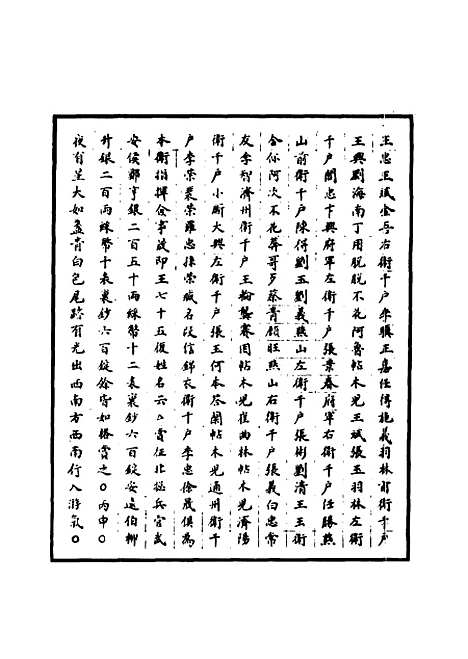 王忠王斌金吾右衛千戶李驥王嘉任得施義羽林前衛千戶
王興劉海南丁用脫脫不花阿魯帖木兒王斌張玉羽林左衛
千戶閻忠卞興府軍左衛千戶張業春府軍右衛千戶任勝燕
山前衛千戶陳得劉玉劉義燕山左衛千戶張彬劉清王王衛
合你阿次不花莽哥歹蔡青顧旺燕山右衛千戶張義白忠常
友李智濟州衛千戶王翰龔賽因帖木兒崔兩林帖木兒濟陽
衛千戶小斷大興左衛千戶張玉何本答蘭帖木兒通州衛千
戶李榮裴榮羅忠孫榮臧名改信錦衣衛千戶李忠徐晟俱為
本衛指揮僉事故即王七十五復姓名云○賞征北征兵官武
安侯鄭亨銀二百五十兩綵幣十二表裏鈔六百錠安遠伯柳
升銀二百兩綵幣十表裏鈔六百錠餘皆如格賞之○丙申○
夜有星大如盞青白色尾跡有光出西南方西南行入游氣○